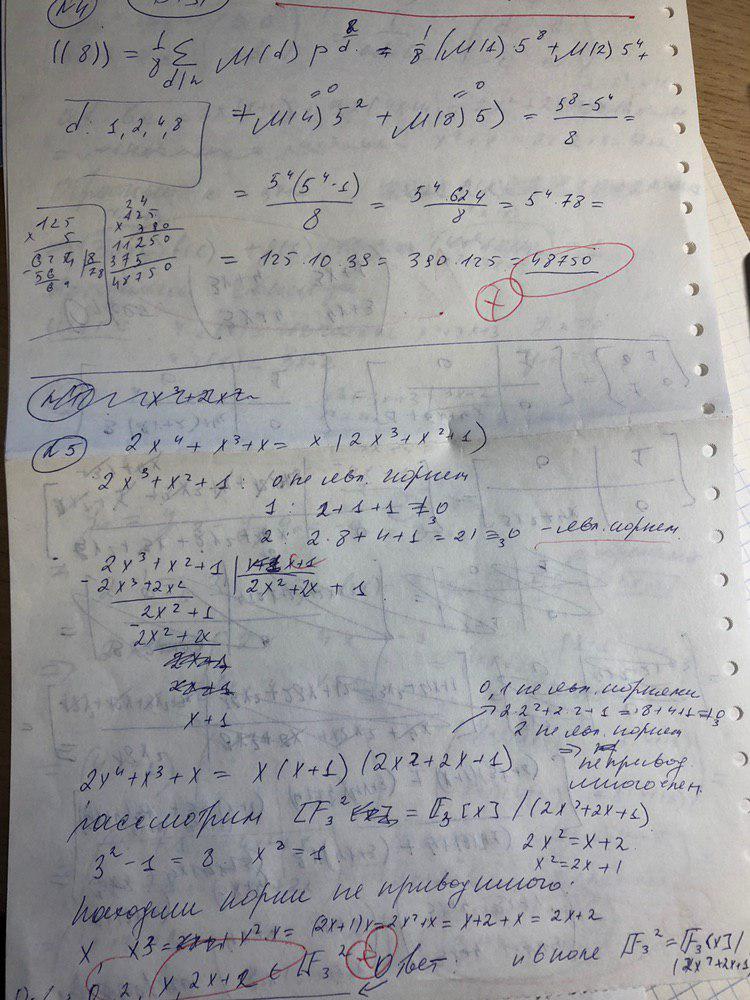 N4
((8)) = 1/8 Σ d|n M(d) p^(8/d) = 1/8 (M(1) 5^8 + M(2) 5^4 +
d: 1, 2, 4, 8
+ M(4) 5^2 + M(8) 5) = (5^8 - 5^4)/8 =
= 0
= 0
= 5^4(5^4-1)/8 = 5^4 · 624/8 = 5^4 · 78 =
= 125 · 10 · 39 = 390 · 125 = 48750
+
125
× 5
11250
375
48750
N5
2x^4 + x^3 + x = x (2x^3 + x^2 + 1)
2x^3 + x^2 + 1 : 0 не явл. корнем
1 : 2 + 1 + 1 ≠_3 0
2 2·8 + 4 + 1 = 21 =_3 0 - явл. корнем.
2x^3 + x^2 + 1 | x+1
2x^3 + 2x^2 2x^2 + 2x + 1
2x^2 + 1
2x^2 + 2x
x + 1
0, 1 не явл. корнями
2·2^2 + 2·2 + 1 = 8 + 4 + 1 ≠_3 0
2 не явл. корнем
⇒ непривод.
многочлен.
2x^4 + x^3 + x = x (x+1) (2x^2 + 2x + 1)
рассмотрим F_3^2 = F_3 [x] / (2x^2 + 2x + 1)
3^2 - 1 = 8 x^8 = 1
2x^2 = x + 2
x^2 = 2x + 1
находим корни не приводимого:
x x^3 = x^2 · x = (2x+1)x = 2x^2 + x = x + 2 + x = 2x + 2
Ответ: 0, 2, x, 2x+2 ∈ F_3^2
и в поле F_3^2 = F_3[x] /
(2x^2+2x+1)